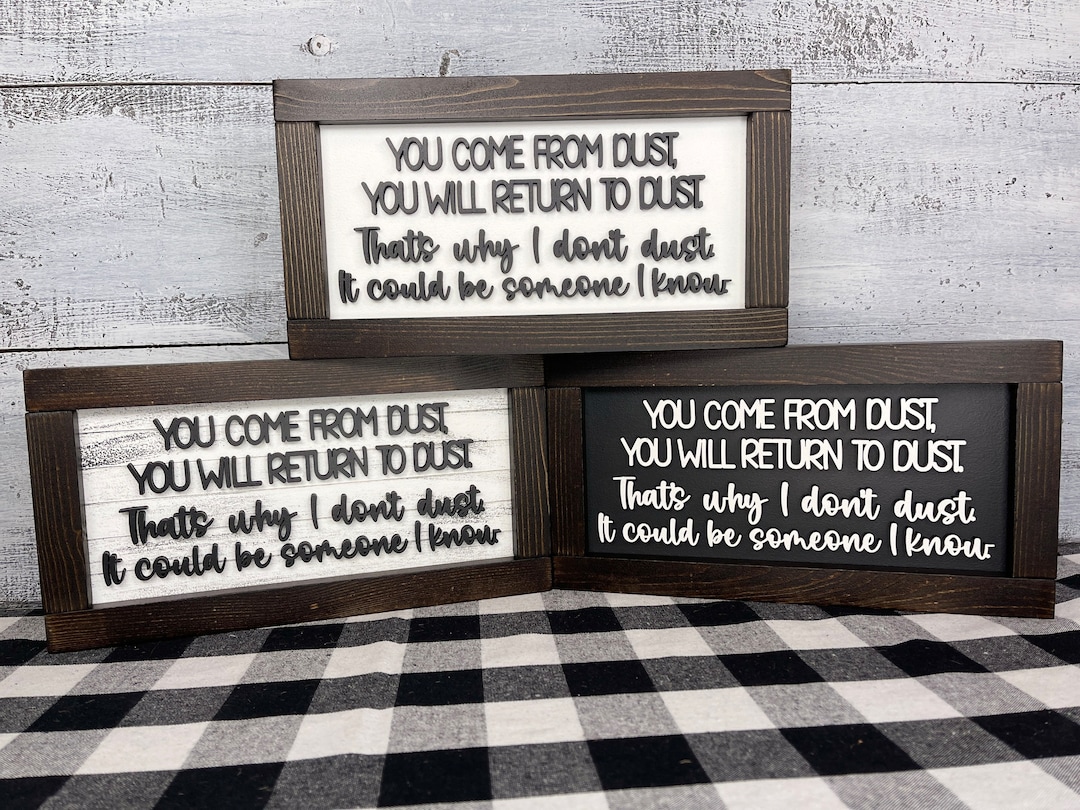 YOU COME FROM DUST,
YOU WILL RETURN TO DUST.
That's why I don't dust.
It could be someone I know.
YOU COME FROM DUST,
YOU WILL RETURN TO DUST.
That's why I don't dust.
It could be someone I know.
YOU COME FROM DUST,
YOU WILL RETURN TO DUST.
That's why I don't dust.
It could be someone I know.